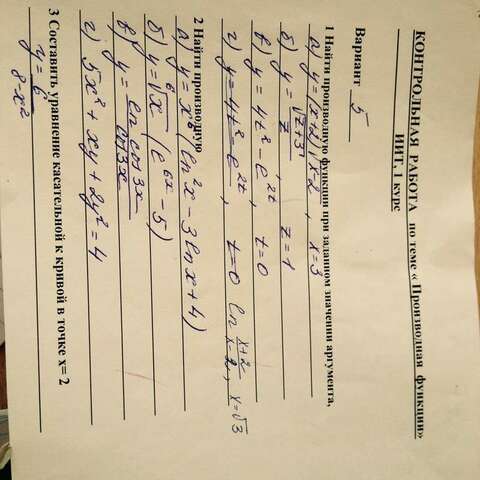 КОНТРОЛЬНАЯ РАБОТА по теме « Производная функции»
ИИТ, 1 курс
Вариант 5
1 Найти производную функции при заданном значении аргумента,
а) y = (x+2)√x-2, x=3
б) y = √z+3 / z, z=1
в) y = 4t² - e^2t, t=0
г) y = 4t² - e^2t, t=0 ln x+2 / x-2, x=√3
2 Найти производную
а) y = x⁶ (ln²x - 3 ln x + 4)
б) y = ⁶√x (e^6x - 5)
в) y = ln cos 3x / cos 3x
г) 5x² + xy + 2y² = 4
3 Составить уравнение касательной к кривой в точке x= 2
y = 6 / 8-x²